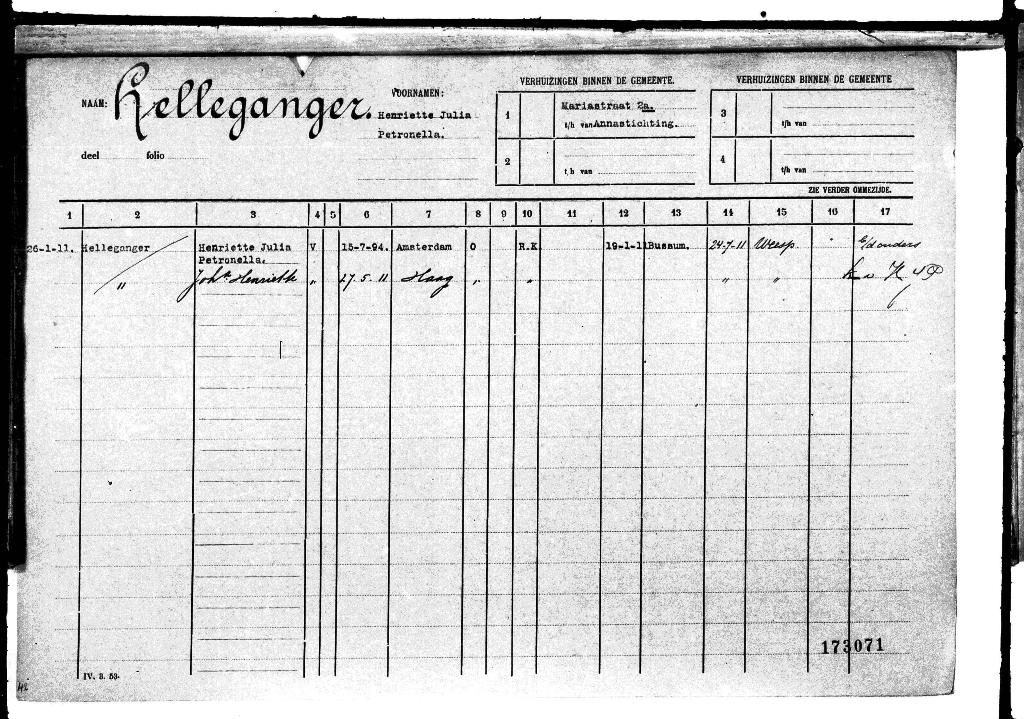 NAAM: Helleganger.
VOORNAMEN:
Henriette Julia
Petronella.
deel folio
VERHUIZINGEN BINNEN DE GEMEENTE.
1 Mariastraat 2a.
t/h van Annastichting.
2
t/h van
VERHUIZINGEN BINNEN DE GEMEENTE
3
t/h van
4
t/h van
ZIE VERDER OMMEZIJDE.
1 2 3 4 5 6 7 8 9 10 11 12 13 14 15 16 17
26-1-11. Helleganger Henriette Julia V 15-7-94. Amsterdam O R.K 19-1-11 Bussum. 24-7-11 Weesp b/d ouders
Petronella.
" Joha Henriette " 27.5.11 Haag " " " " k v H J P
173071
IV. 3. 53.